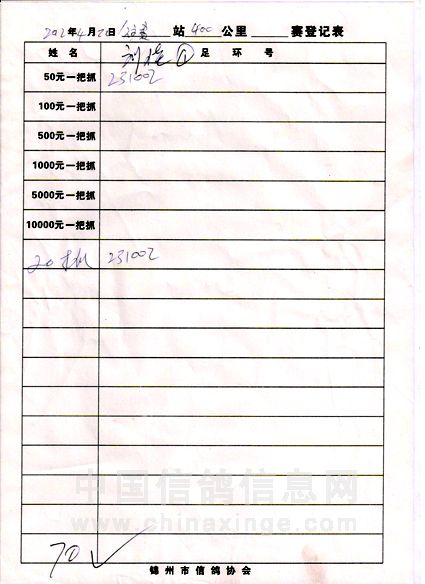 年4月 日 站400公里 赛登记表
姓名 刘 ① 足环号
50元一把抓 231002
100元一把抓
500元一把抓
1000元一把抓
5000元一把抓
10000元一把抓
20 231002
中国信鸽信息网
www.chinaxinge.com
70 ✓
锦州市信鸽协会